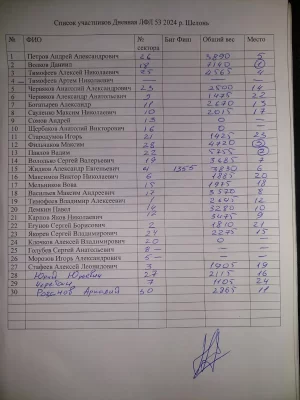 Список участников Дивная ЛФЛ 53 2024 р. Шелонь
№ ФИО № сектора Биг Фиш Общий вес Место
1 Петров Андрей Александрович 26 5890 5
2 Волков Даниил 18 7140 1
3 Тимофеев Алексей Николаевич 25 4565 4
4 Тимофеев Артем Николаевич — — —
5 Червяков Анатолий Николаевич 23 2500 14
6 Червяков Александр Анатольевич 9 1475 22
7 Богатырев Александр 11 2670 13
8 Максим Николаевич 10 2015 17
9 Соков Андрей 13 0 —
10 Щербаков Анатолий Викторович 16 0 —
11 Игорь 21 1425 23
12 Филимонов Максим 28 4720 3
13 Павлов Вадим 22 5255 2
14 Сергей Валерьевич 19 3685 7
15 Жиляков Александр Евгеньевич 4 1355 3830 6
16 Максимов Виктор Николаевич 6 1885 20
17 Вова 15 1975 18
18 Васильев Максим Андреевич 15 3520 8
19 Тимофеев Владимир Алексеевич 1 2645 12
20 Демкин Павел 14 3280 10
21 Карпов Яков Николаевич 12 3475 9
22 Егунов Сергей Борисович 2 1810 21
23 Сергей Владимирович 24 2275 15
24 Клочков Алексей Владимирович 20 0 —
25 Голубев Сергей Анатольевич 8 — —
26 Морозов Игорь Александрович 5 — —
27 Стафеев Алексей Леонидович 3 1905 19
28 Юрий Юрьевич 27 2115 16
29 7 1105 24
30 Родионов Аркадий 30 2865 11